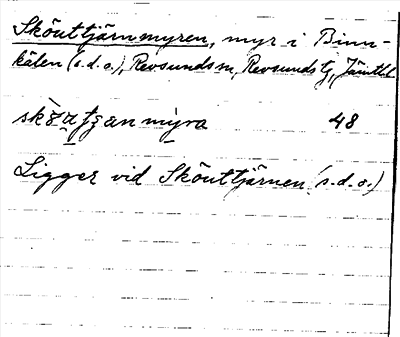 Sköuttjärnmyren, myr i Binn-
kälen (s.d.o.), Revsunds sn, Revsunds tg, Jämtl.
myra 48
Ligger vid Sköuttjärnen (s.d.o.)